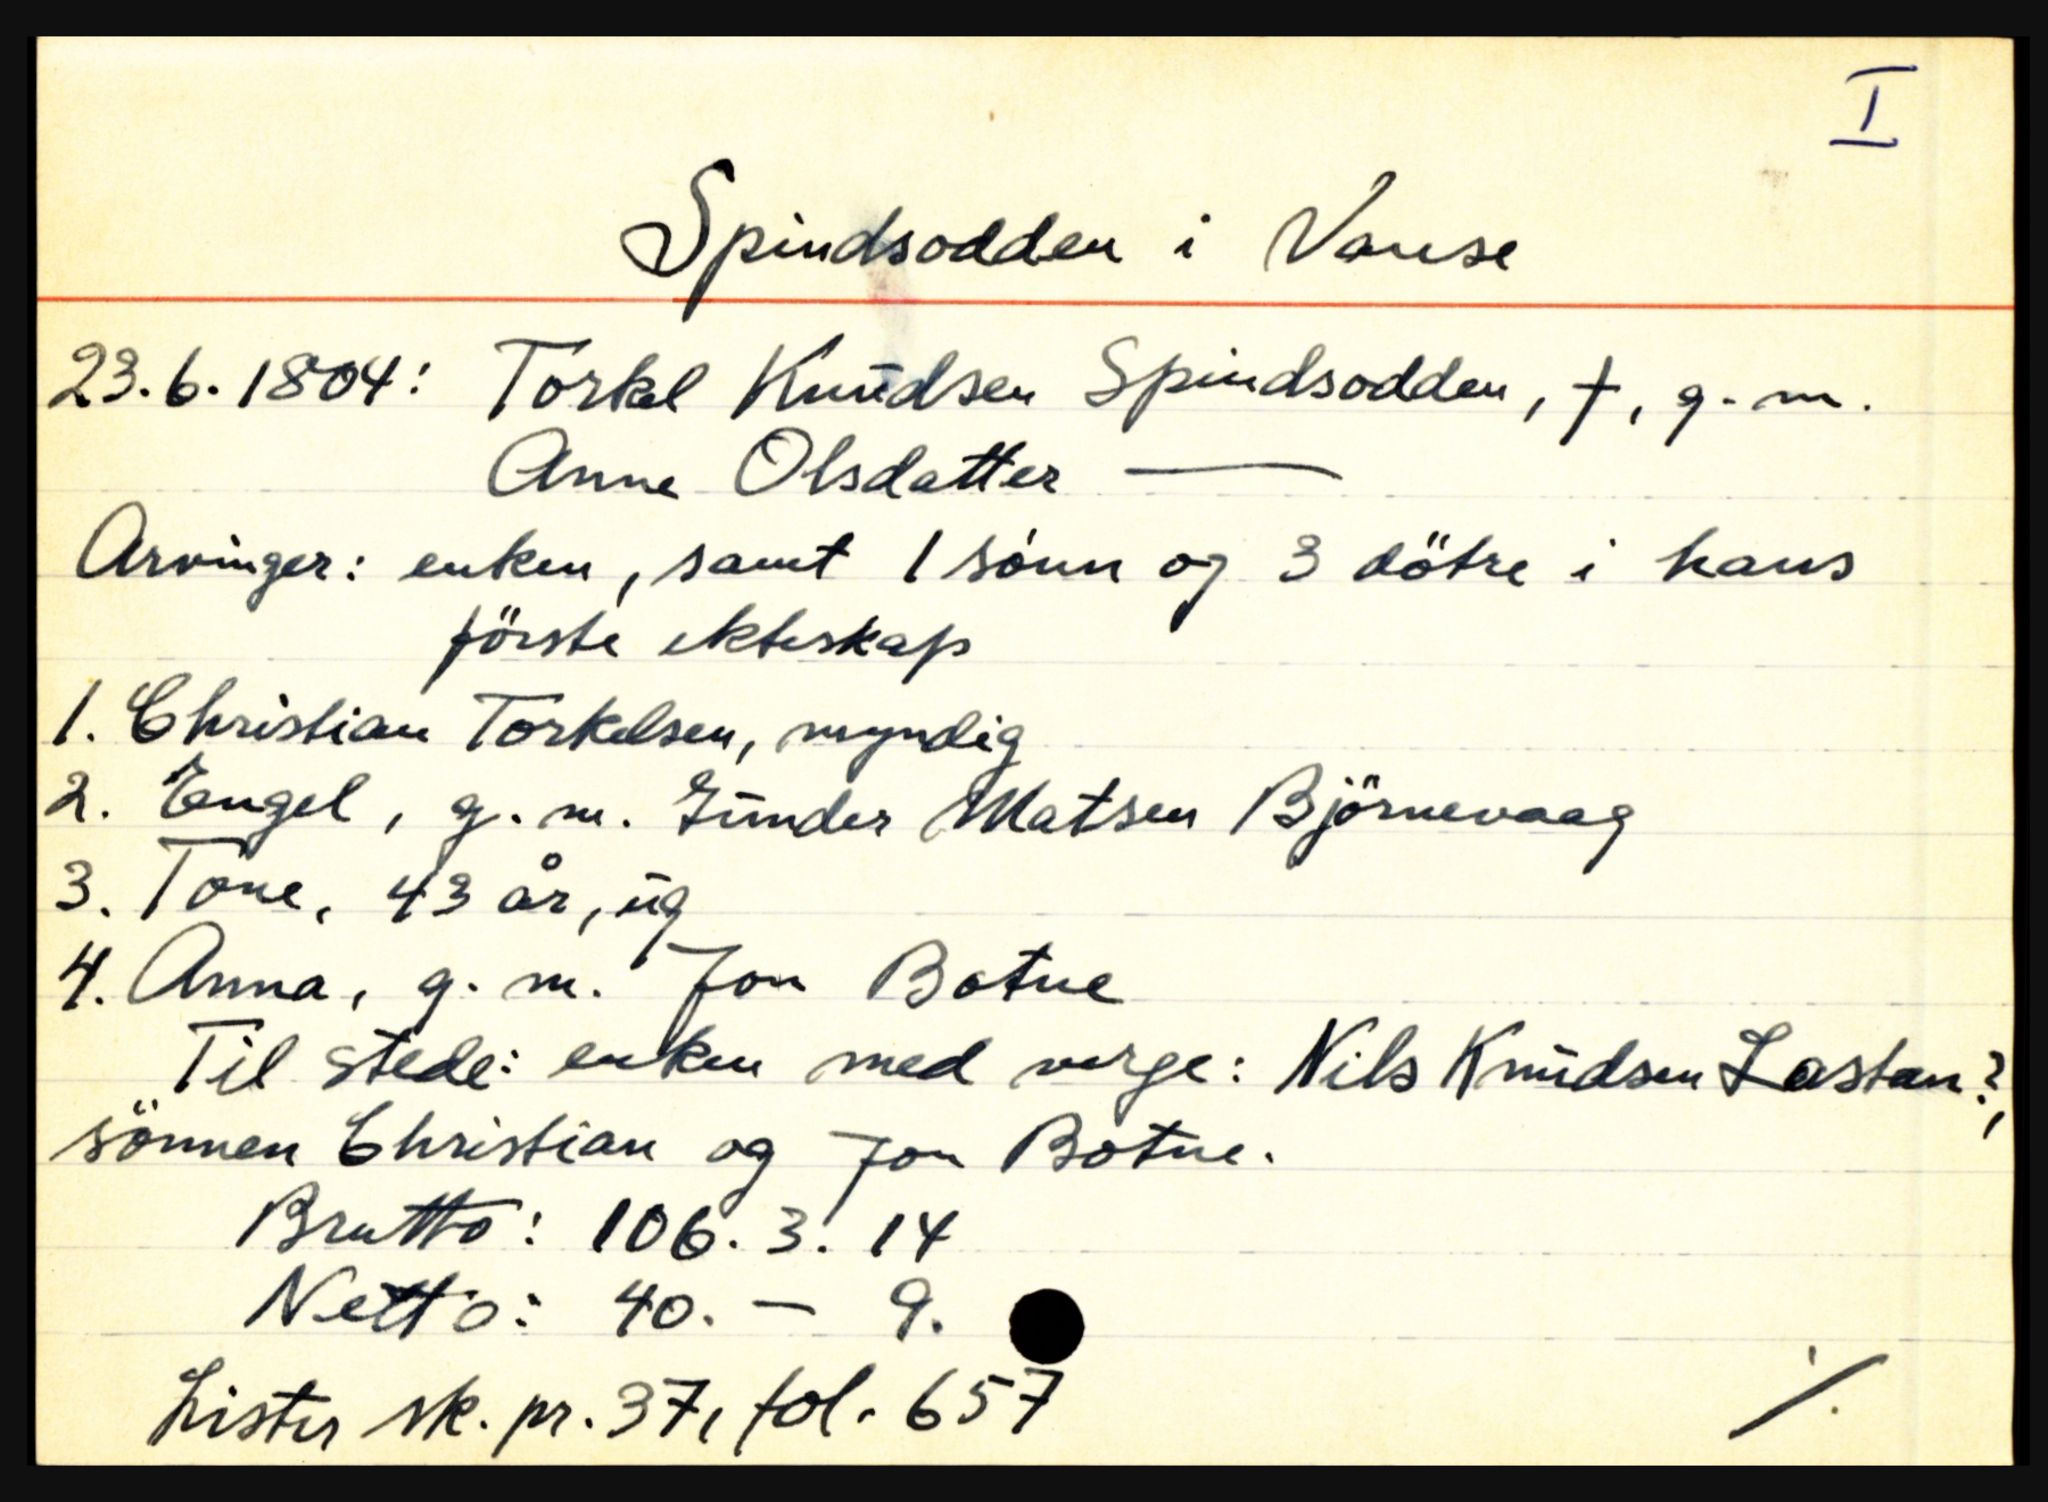 I
Spindsodden i Vanse
23.6.1804: Torkel Knudsen Spindsodden, †, g.m.
Anne Olsdatter —
Arvinger: enken, samt 1 sönn og 3 dötre i hans
förste ekteskap
1. Christian Torkelsen, myndig
2. Engel, g.m. Gunder Matsen Björnevaag
3. Tone, 43 år, ug
4. Anna, g.m. Jon Botne
Til stede: enken med verge: Nils Knudsen Lastan?,
sönnen Christian og Jon Botne.
Brutto: 106. 3. 14
Netto: 40. — 9.
Lister sk. pr. 37, fol. 657
./.